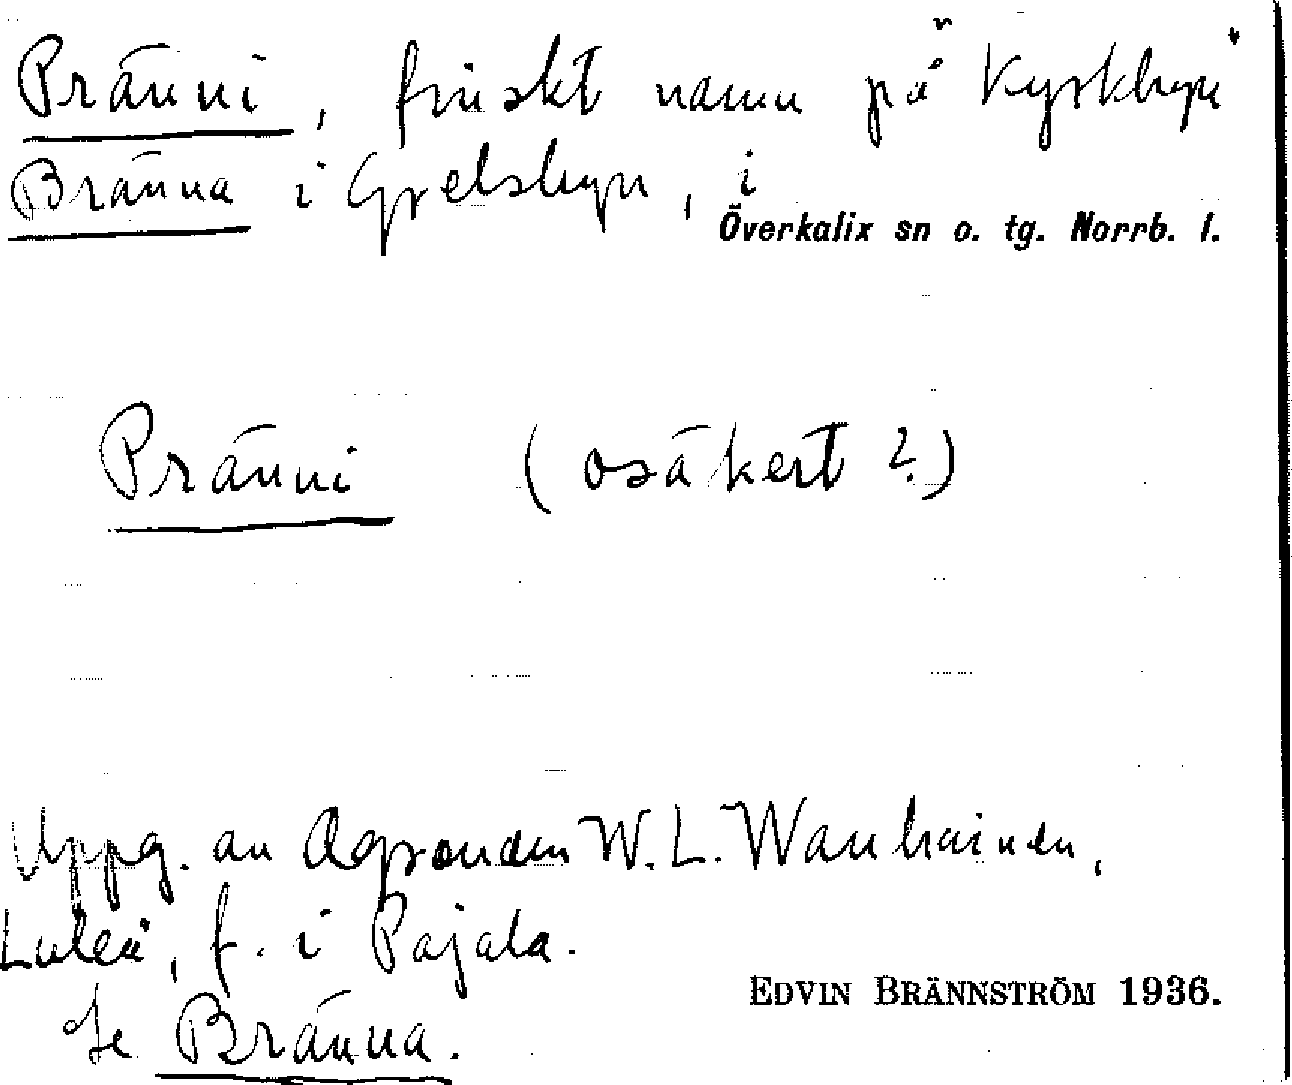 Pränni, finskt namn på "Kyrkbyn"
Bränna i Grelsbyn, i
Överkalix sn o. tg. Norrb. l.
Pränni (osäkert?)
Uppg. av Agronom W. L. Wanhainen,
Luleå, f. i Pajala.
EDVIN BRÄNNSTRÖM 1936.
Se Bränna.